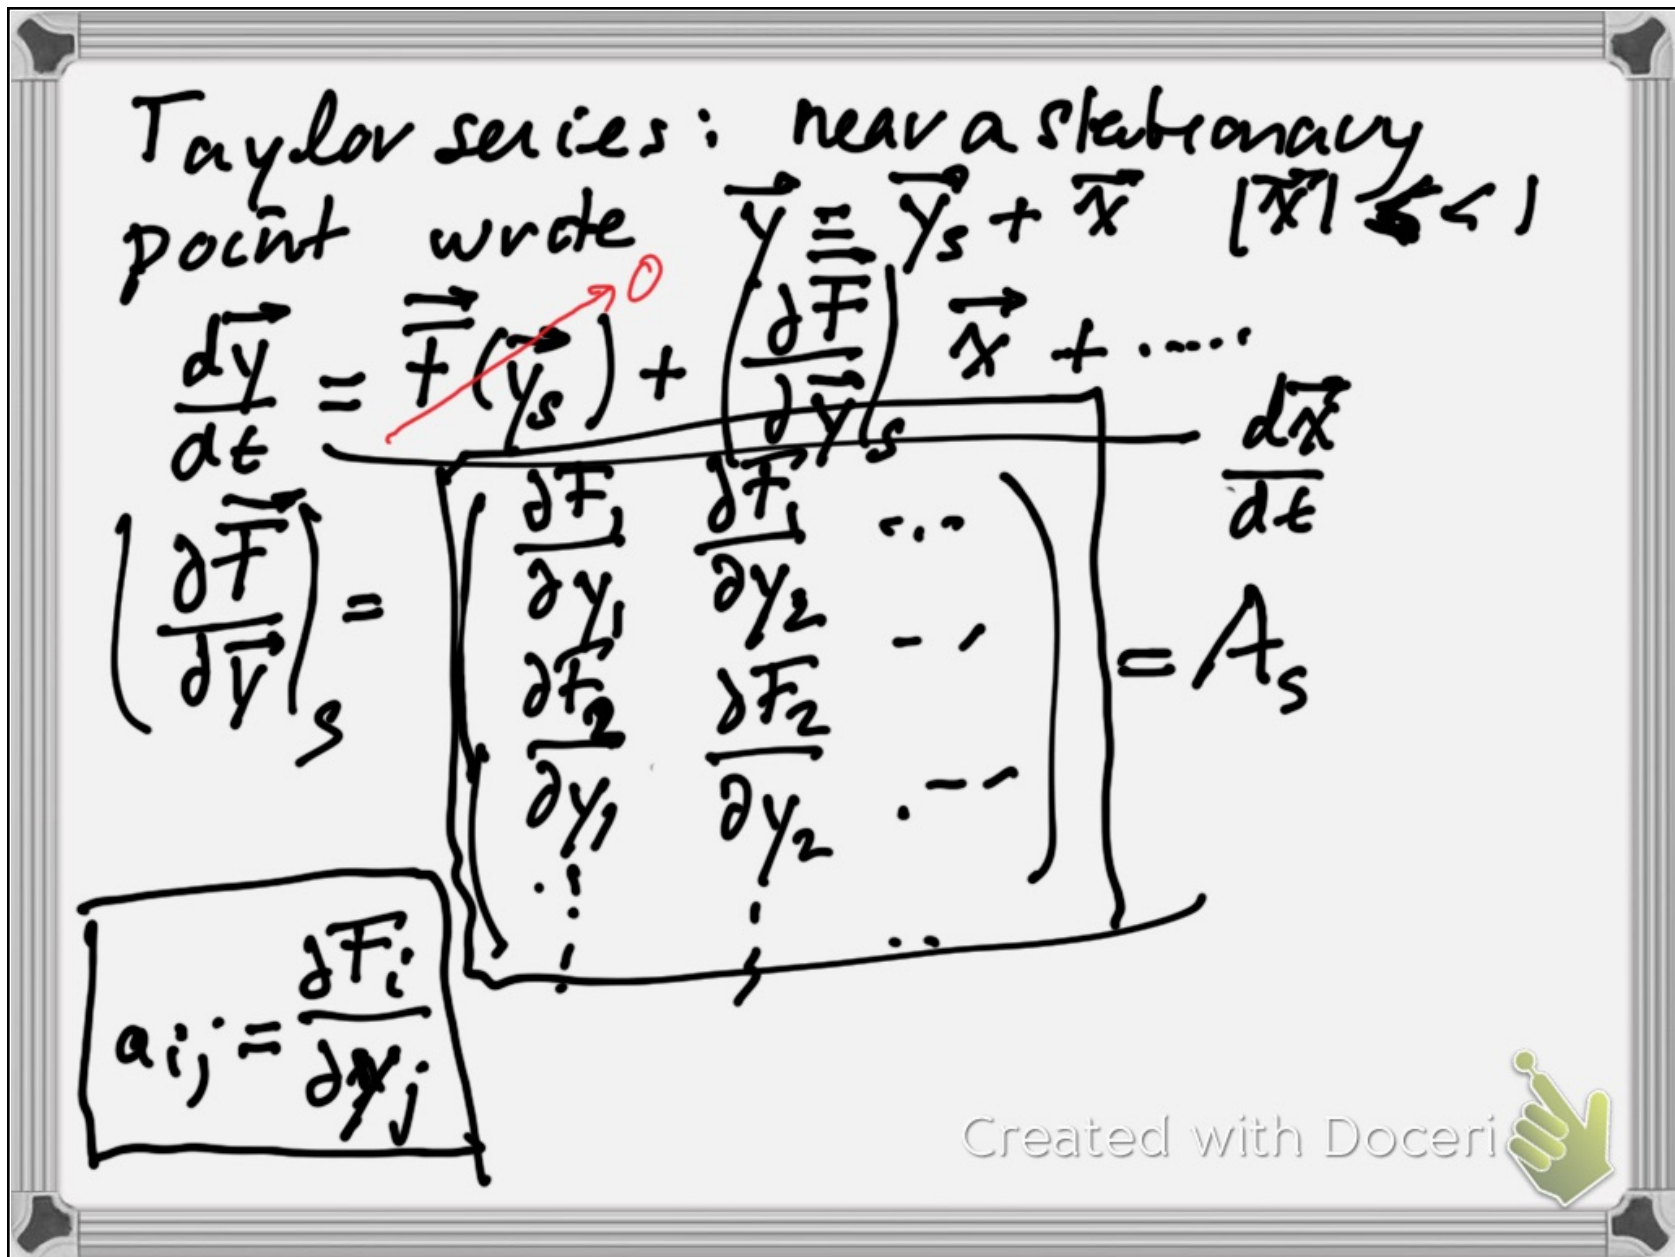 Taylor series: near a stationary
point write y⃗ = y⃗ₛ + x⃗ |x⃗| << 1
dy⃗/dt = F⃗(y⃗ₛ) → 0 + (∂F⃗/∂y⃗)ₛ x⃗ + .....
dx⃗/dt
(∂F⃗/∂y⃗)ₛ = ( ∂F₁/∂y₁ ∂F₁/∂y₂ ...
∂F₂/∂y₁ ∂F₂/∂y₂ ... ) = Aₛ
aᵢⱼ = ∂Fᵢ/∂yⱼ
Created with Doceri